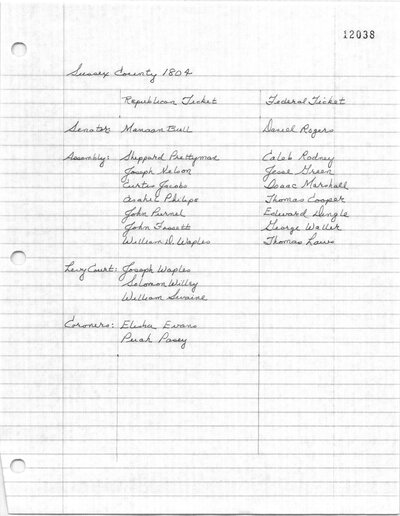 12038
Sussex County 1804
Republican Ticket Federal Ticket
Senate: Manaan Bull Daniel Rogers
Assembly: Sheppard Prettyman Caleb Rodney
Joseph Nelson Jesse Green
Curtis Jacobs Isaac Marshall
Asahel Philips Thomas Cooper
John Purnel Edward Dingle
John Fossett George Waller
William D. Waples Thomas Laws
Levy Court: Joseph Waples
Solomon Willey
William Swaine
Coroners: Elisha Evans
Pasey